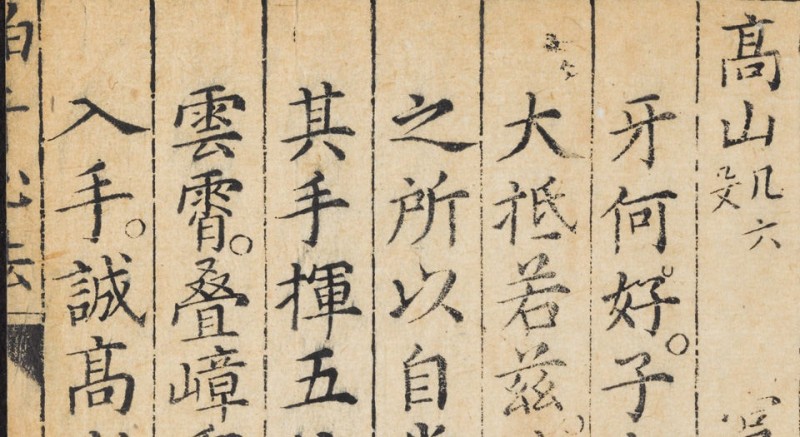 高山
几六
牙何好。子
大祗若茲
之所以自
其手揮五
雲霄。叠嶂
入手。誠髙